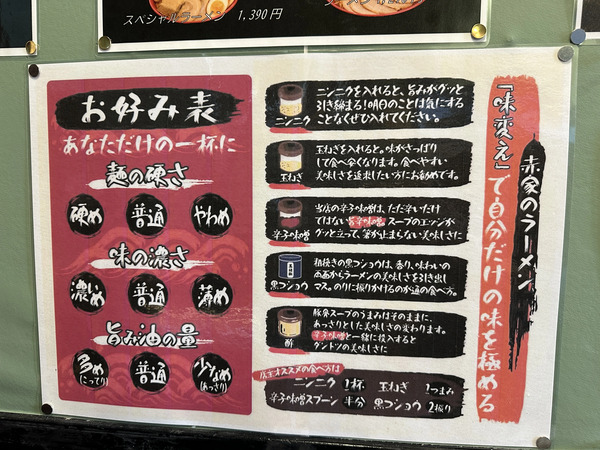 スペシャルラーメン 1,390円
お好み表
あなただけの一杯に
麺の硬さ
硬め 普通 やわめ
味の濃さ
濃いめ 普通 薄め
旨み油の量
多め(こってり) 普通 少なめ(あっさり)
ニンニク
ニンニクを入れると、旨みがグッと
引き締まる!明日のことは気にする
ことなくぜひ入れてください。
玉ねぎ
玉ねぎを入れると。味がさっぱり
して食べ辛くなります。食べやすい
美味しさを追求したい方にお勧めです。
辛子味噌
当店の辛子味噌は、ただ辛いだけ
ではない旨辛味噌 スープのエッジが
グッと立って、箸が止まらない美味しさに
黒フショウ
粗挽きの黒フショウは、香り、味わいの
両面からラーメンの美味しさを引き出し
マス。のりに振りかけるのが通の食べ方。
酢
豚骨スープのうまみはそのままに、
あっさりとした美味しさの変わります。
辛子味噌と一緒に投入すると
ダントツの美味しさに
店主オススメの食べ方は
ニンニク 1杯 玉ねぎ 1つまみ
辛子味噌スプーン 半分 黒フショウ 2振り
赤家のラーメン
「味変え」で自分だけの味を極める